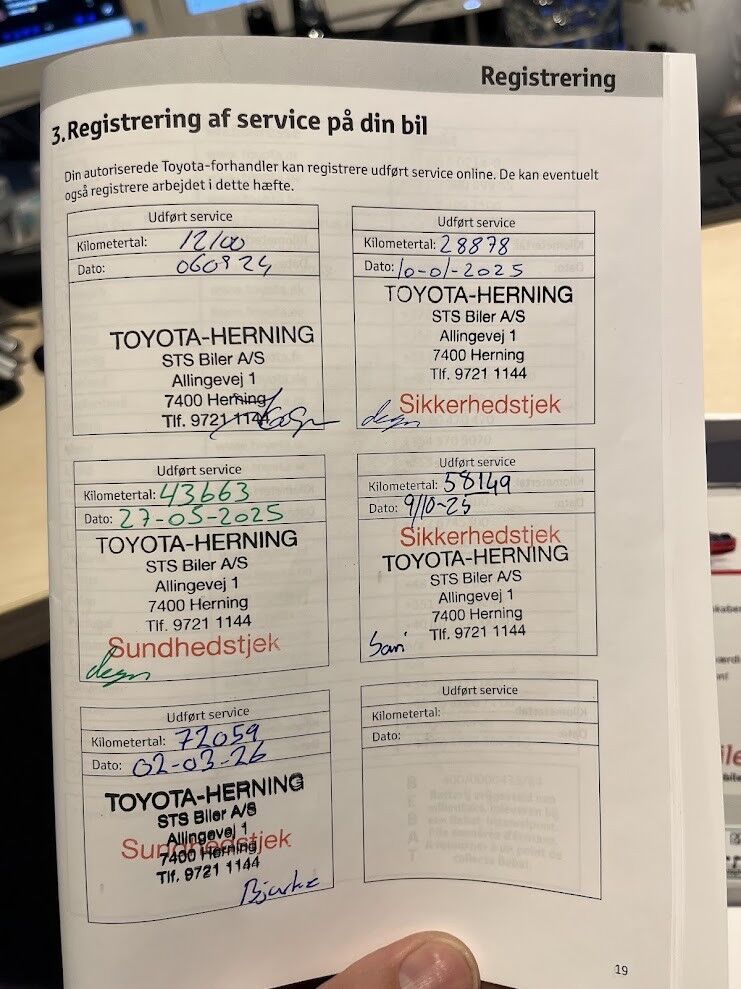 Registrering
3. Registrering af service på din bil
Din autoriserede Toyota-forhandler kan registrere udført service online. De kan eventuelt
også registrere arbejdet i dette hæfte.
Udført service
Kilometertal: 12100
Dato: 060924
TOYOTA-HERNING
STS Biler A/S
Allingevej 1
7400 Herning
Tlf. 9721 1144
Udført service
Kilometertal: 28878
Dato: 10-01-2025
TOYOTA-HERNING
STS Biler A/S
Allingevej 1
7400 Herning
Tlf. 9721 1144
Sikkerhedstjek
Udført service
Kilometertal: 43663
Dato: 27-05-2025
TOYOTA-HERNING
STS Biler A/S
Allingevej 1
7400 Herning
Tlf. 9721 1144
Sundhedstjek
Udført service
Kilometertal: 58149
Dato: 9/10-25
Sikkerhedstjek
TOYOTA-HERNING
STS Biler A/S
Allingevej 1
7400 Herning
Tlf. 9721 1144
Udført service
Kilometertal: 72059
Dato: 02-03-26
TOYOTA-HERNING
STS Biler A/S
Allingevej 1
Sundhedstjek
7400 Herning
Tlf. 9721 1144
Bjarke
Udført service
Kilometertal:
Dato:
19